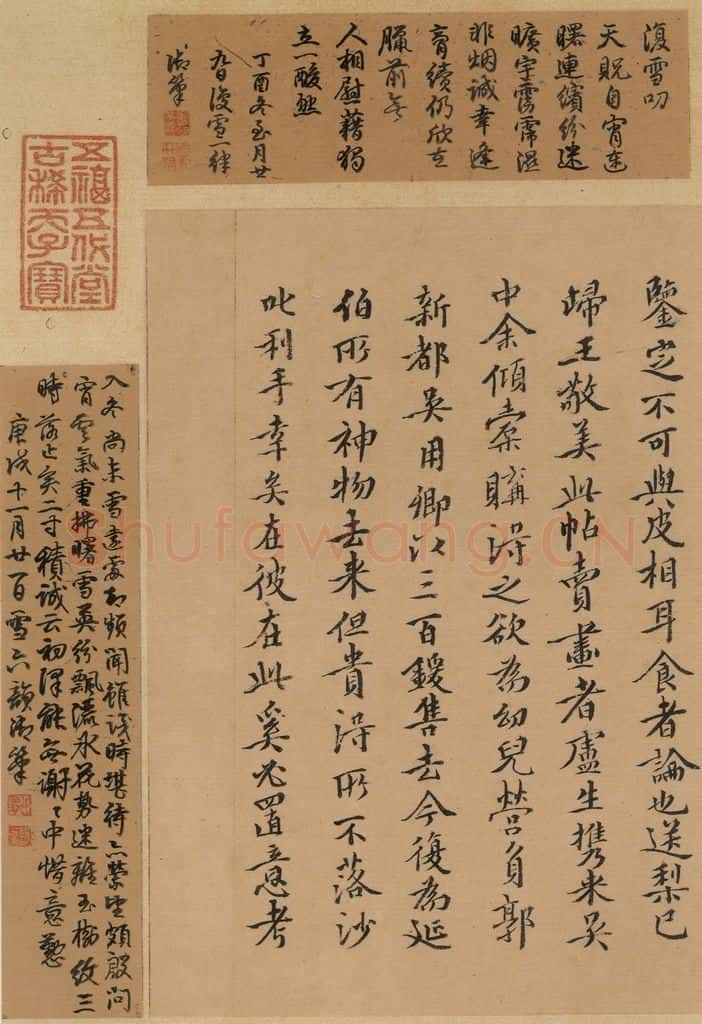 復雪叨
天貺自宵達
曙連繽紛迷
曠宇霑霈溼
非烟誠幸逢
膏續仍欣在
臘前無
人相慰藉獨
立一酸然
丁酉冬至月廿
九日復雪一律
御筆
五福五代堂
古稀天子寶
鑒定不可與皮相耳食者論也送梨已
歸王敬美此帖賣畫者盧生攜來吳
中余傾橐購得之欲為幼兒營負郭
新都吳用卿以三百鍰售去今復為延
伯所有神物去來但貴得所不落沙
叱利手幸矣在彼在此奚必置意考
入冬尚未雪遠處却頻聞雖淺時堪待亦縈望頗殷向
宵雲氣重拂曙雪英紛飄灑水花勢迷離玉樹紋三
時落止矣二寸積誠云初澤能無謝謝中惜意懃
庚戌十一月廿一日雪六韻御筆
Shufawang.CN